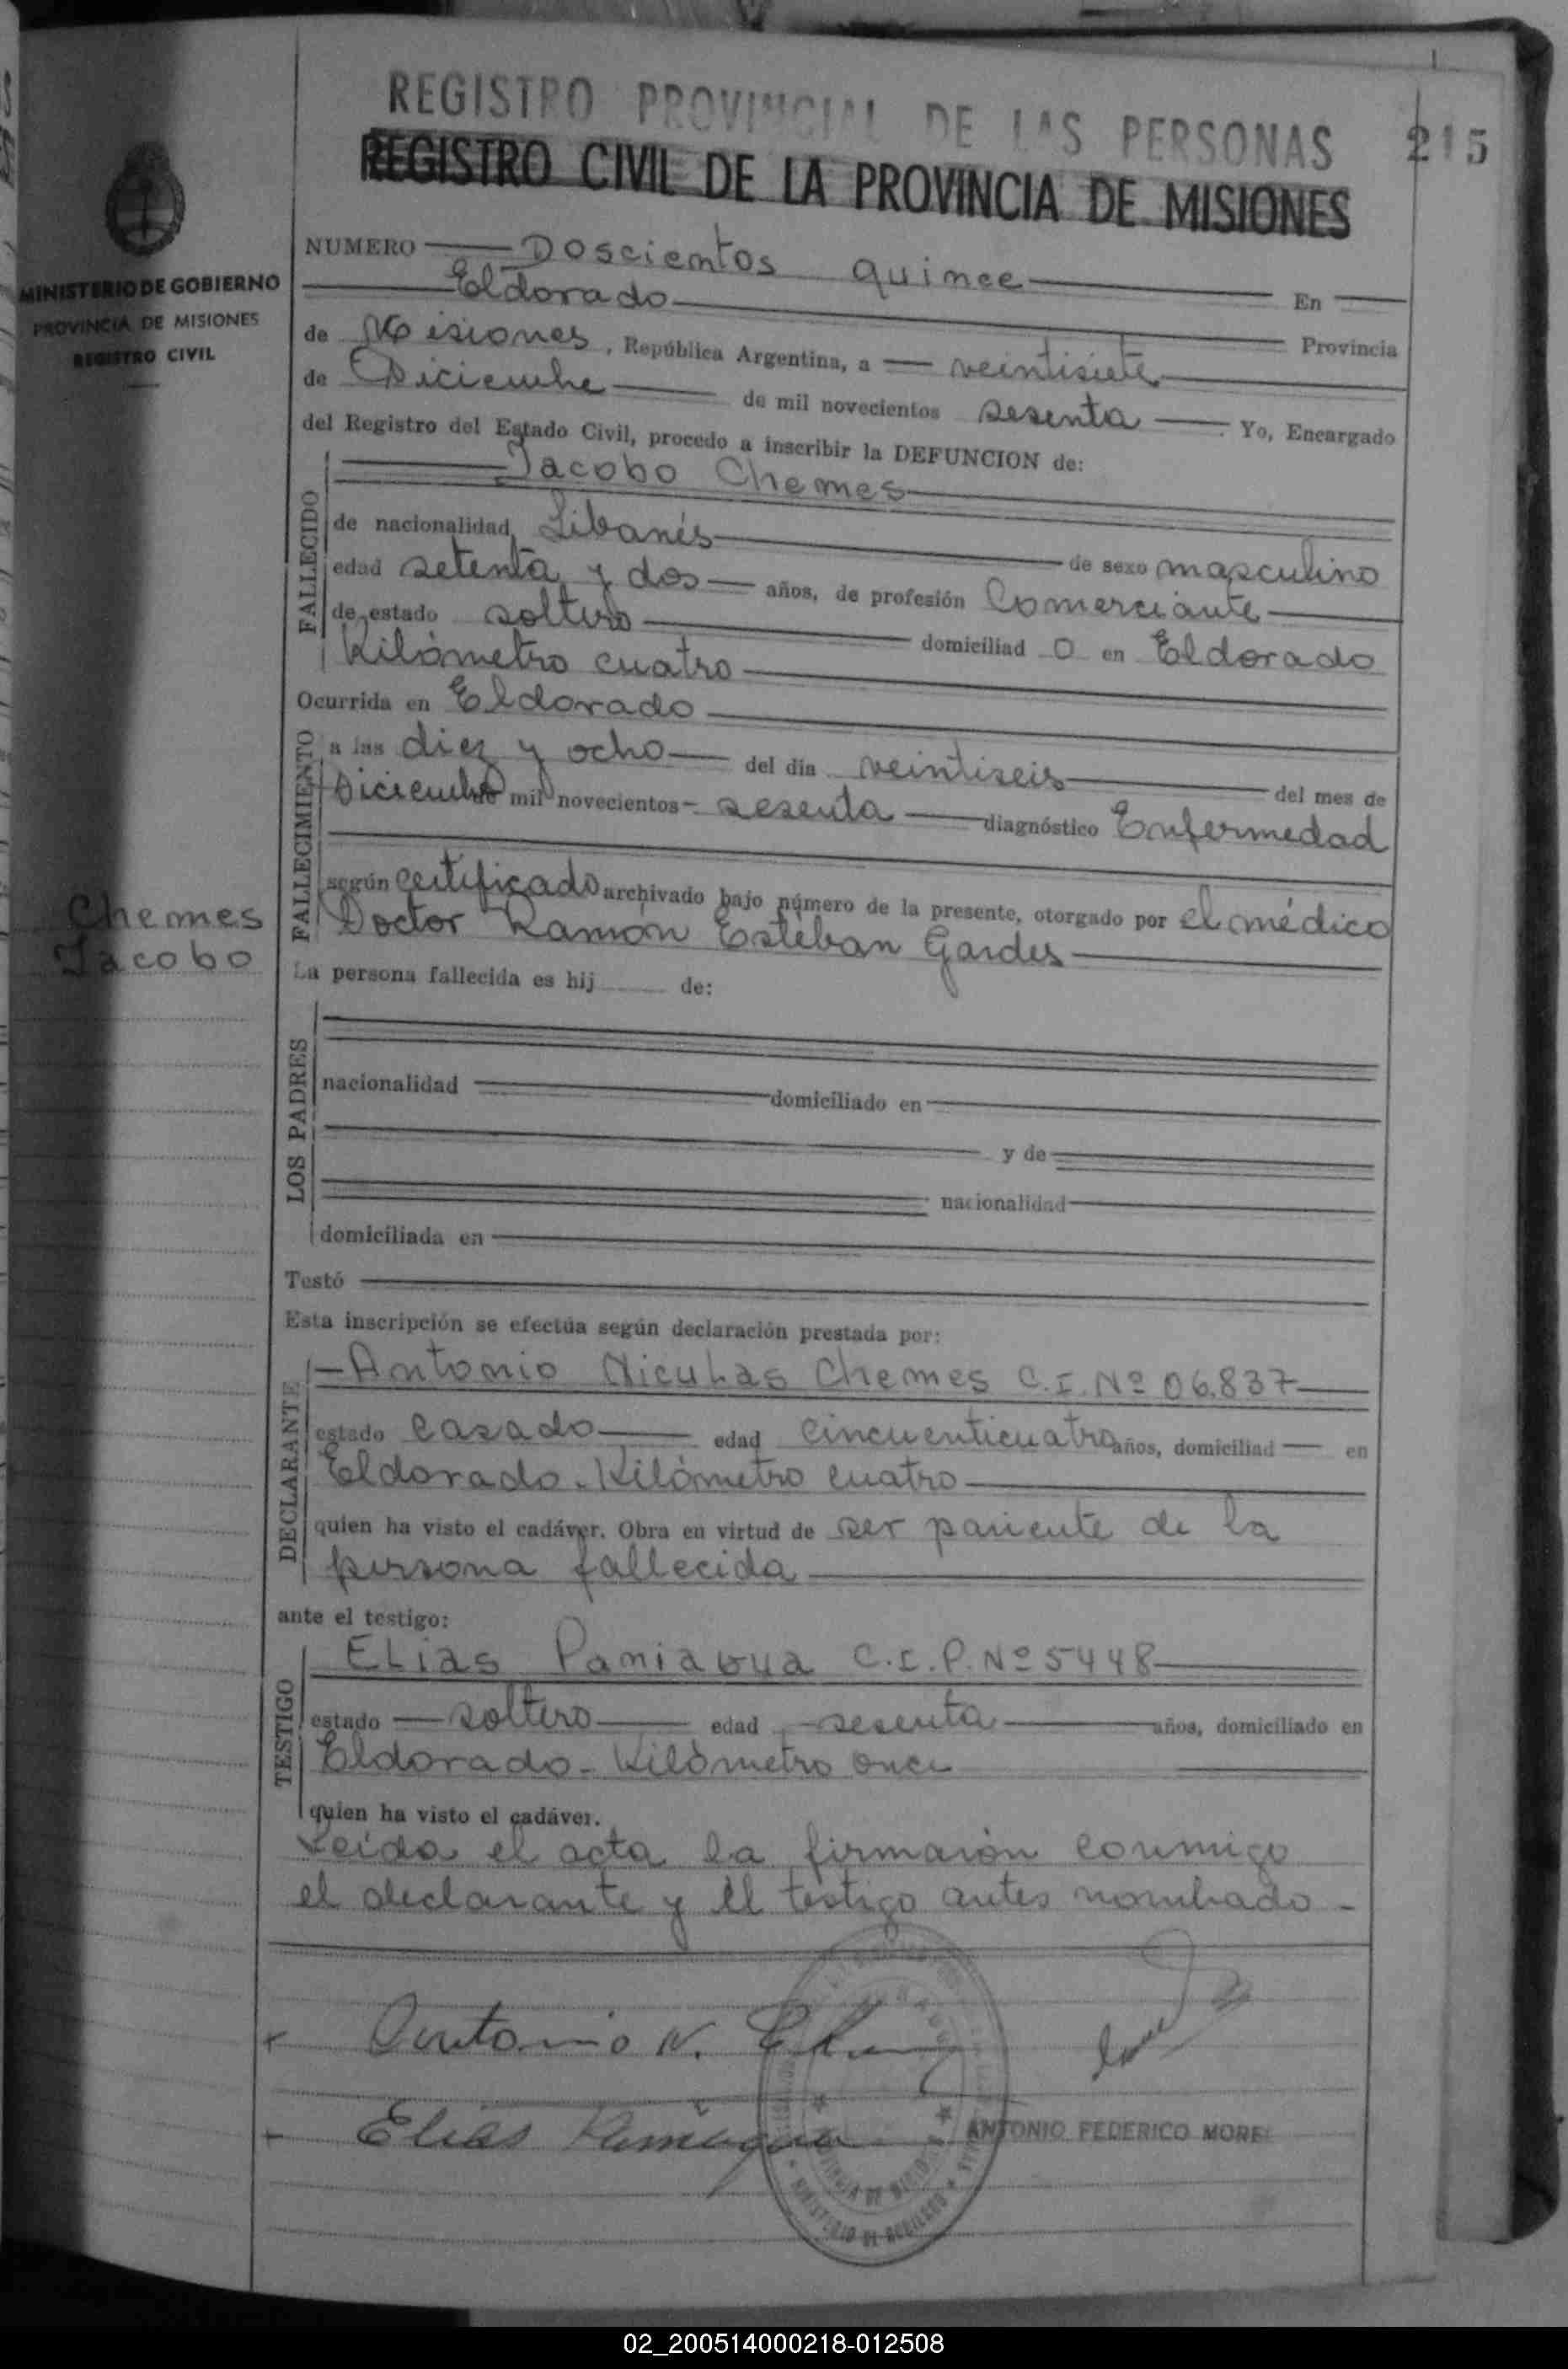 REGISTRO PROVINCIAL DE LAS PERSONAS 215
REGISTRO CIVIL DE LA PROVINCIA DE MISIONES
MINISTERIO DE GOBIERNO
PROVINCIA DE MISIONES
REGISTRO CIVIL
NUMERO Doscientos quince En
Eldorado Provincia
de Misiones, República Argentina, a veintisiete
de Diciembre de mil novecientos sesenta. Yo, Encargado
del Registro del Estado Civil, procedo a inscribir la DEFUNCION de:
FALLECIDO
Jacobo Chemes
de nacionalidad Libanés de sexo masculino
edad setenta y dos años, de profesión Comerciante
de estado soltero domiciliad o en Eldorado
Kilómetro cuatro
Ocurrida en Eldorado
FALLECIMIENTO
a las diez y ocho del dia veintiseis del mes de
Diciembre de mil novecientos sesenta diagnóstico Enfermedad
según certificado archivado bajo número de la presente, otorgado por el médico
Doctor Ramón Esteban Gardes
Chemes
Jacobo
La persona fallecida es hij de:
LOS PADRES
nacionalidad domiciliado en
y de
nacionalidad
domiciliada en
Testó
Esta inscripción se efectúa según declaración prestada por:
DECLARANTE
Antonio Niculas Chemes C.I. Nº 06.837
estado casado edad cincuenticuatro años, domiciliad en
Eldorado - Kilómetro cuatro
quien ha visto el cadáver. Obra en virtud de ser pariente de la
persona fallecida
ante el testigo:
TESTIGO
Elias Paniagua C.I.P. Nº 5448
estado soltero edad sesenta años, domiciliado en
Eldorado - Kilómetro once
quien ha visto el cadáver.
Leída el acta la firmarón conmigo
el declarante y el testigo antes nombrado -
Antonio N.
Elias Paniagua
ANTONIO FEDERICO MOREL
PROVINCIA DE MISIONES
MINISTERIO DE GOBIERNO
02_200514000218-012508